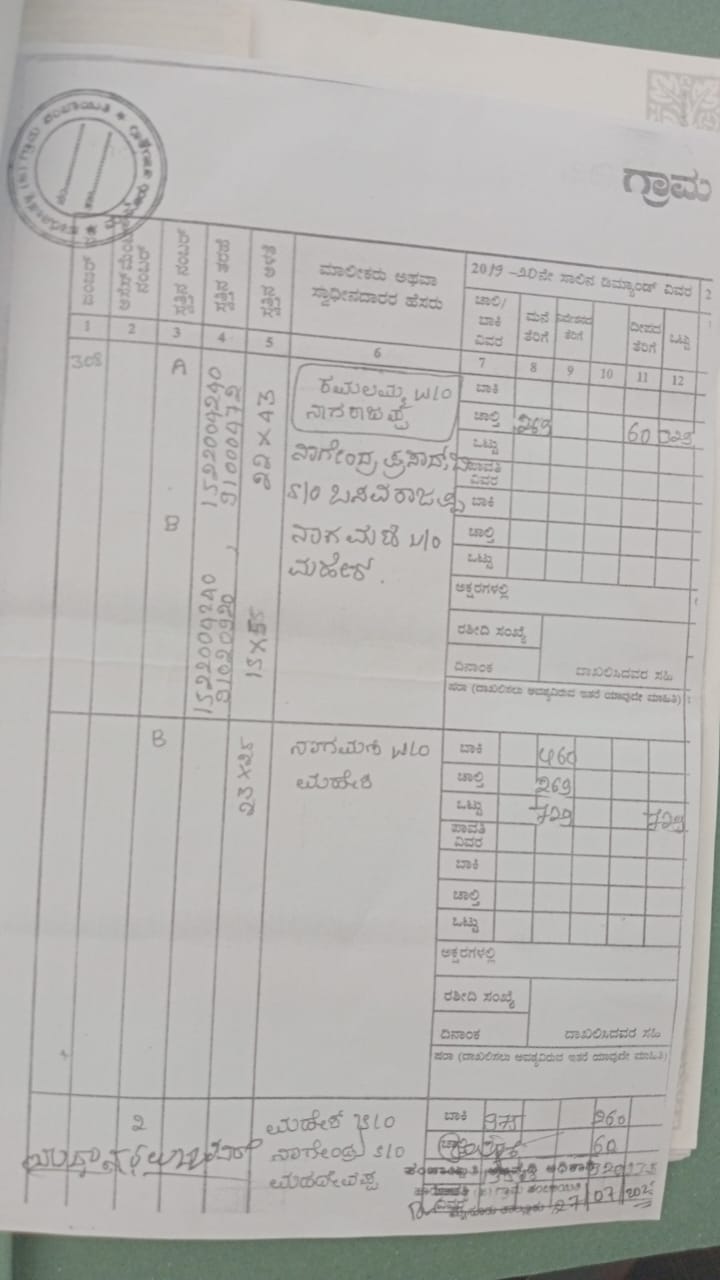 ಗ್ರಾಮ
ಆಸೆಸ್‌ಮೆಂಟ್ ನಂಬರ್
ಸ್ವತ್ತಿನ ನಂಬರ್
ಸ್ವತ್ತಿನ ತರಹೆ
ಸ್ವತ್ತಿನ ಅಳತೆ
ಮಾಲೀಕರು ಅಥವಾ
ಸ್ವಾಧೀನದಾರರ ಹೆಸರು
2019 -20ನೇ ಸಾಲಿನ ಡಿಮ್ಯಾಂಡ್ ವಿವರ
ಚಾಲ್ತಿ/ ಬಾಕಿ ವಿವರ
ಮನೆ ತೆರಿಗೆ
ನಿವೇಶನದ ತೆರಿಗೆ
ದೀಪದ ತೆರಿಗೆ
ಒಟ್ಟು
1 2 3 4 5 6 7 8 9 10 11 12
308 A
1522004240
91000472
22 x 43
ಕಮಲಮ್ಮ W/O
ನಾಗರಾಜಪ್ಪ
ನಾಗೇಂದ್ರ ಪ್ರಸಾದ್
S/O ಬಸವರಾಜಪ್ಪ
B
1522004240
91020920
15 x 55
ನಾಗಮಣಿ W/O
ಮಹೇಶ್.
ಬಾಕಿ
ಚಾಲ್ತಿ 269 60 329
ಒಟ್ಟು
ಪಾವತಿ ವಿವರ
ಬಾಕಿ
ಚಾಲ್ತಿ
ಒಟ್ಟು
ಅಕ್ಷರಗಳಲ್ಲಿ
ರಶೀದಿ ಸಂಖ್ಯೆ
ದಿನಾಂಕ ದಾಖಲಿಸಿದವರ ಸಹಿ
ಷರಾ (ದಾಖಲಿಸಲು ಅವಶ್ಯವಿರುವ ಇತರೆ ಯಾವುದೇ ಮಾಹಿತಿ)
B
23 x 25
ನಾಗಮಣಿ W/O
ಮಹೇಶ
ಬಾಕಿ 460
ಚಾಲ್ತಿ 269
ಒಟ್ಟು 729 729
ಪಾವತಿ ವಿವರ
ಬಾಕಿ
ಚಾಲ್ತಿ
ಒಟ್ಟು
ಅಕ್ಷರಗಳಲ್ಲಿ
ರಶೀದಿ ಸಂಖ್ಯೆ
ದಿನಾಂಕ ದಾಖಲಿಸಿದವರ ಸಹಿ
ಷರಾ (ದಾಖಲಿಸಲು ಅವಶ್ಯವಿರುವ ಇತರೆ ಯಾವುದೇ ಮಾಹಿತಿ)
2 ಮಹೇಶ S/O
ನಾಗೇಂದ್ರ S/O
ಮಹದೇವಪ್ಪ
ಬಾಕಿ 975 260
60
ಪಂಚಾಯಿತಿ ಅಭಿವೃದ್ಧಿ ಅಧಿಕಾರಿ
ಗ್ರಾಮ ಪಂಚಾಯಿತಿ
27/07/202